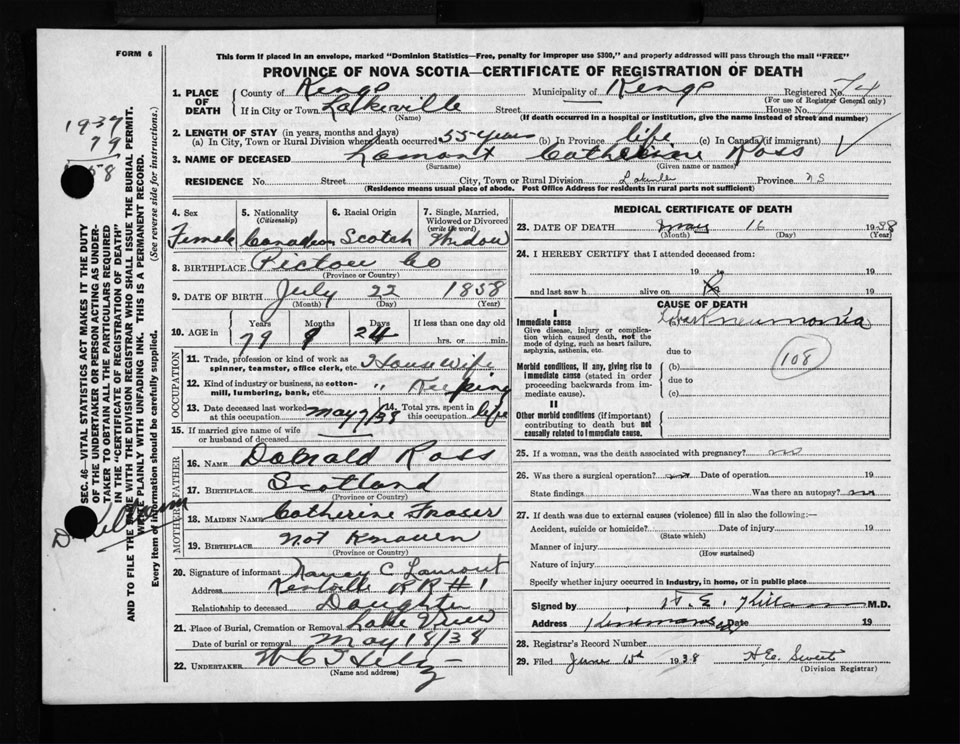 FORM 6
This form if placed in an envelope, marked "Dominion Statistics—Free, penalty for improper use $300," and properly addressed will pass through the mail "FREE"
PROVINCE OF NOVA SCOTIA—CERTIFICATE OF REGISTRATION OF DEATH
1. PLACE OF DEATH County of Kings Municipality of Kings Registered No. 74
(For use of Registrar General only)
If in City or Town Lakeville Street House No.
(Name) (If death occurred in a hospital or institution, give the name instead of street and number)
2. LENGTH OF STAY (in years, months and days)
(a) In City, Town or Rural Division where death occurred 55 years (b) In Province life (c) In Canada (if immigrant)
3. NAME OF DECEASED Lamont Catherine Ross
(Surname) (Given name or names)
RESIDENCE No. Street City, Town or Rural Division Province NS
(Residence means usual place of abode. Post Office Address for residents in rural parts not sufficient)
1937
79
58
SEC. 46—VITAL STATISTICS ACT MAKES IT THE DUTY
OF THE UNDERTAKER OR PERSON ACTING AS UNDER-
TAKER TO OBTAIN ALL THE PARTICULARS REQUIRED
IN THE "CERTIFICATE OF REGISTRATION OF DEATH"
AND TO FILE THE SAME WITH THE DIVISION REGISTRAR WHO SHALL ISSUE THE BURIAL PERMIT.
WRITE PLAINLY WITH UNFADING INK. THIS IS A PERMANENT RECORD.
Every item of information should be carefully supplied. (See reverse side for instructions.)
4. Sex Female
5. Nationality (Citizenship) Canadian
6. Racial Origin Scotch
7. Single, Married, Widowed or Divorced (write the word) Widow
8. BIRTHPLACE Pictou Co
(Province or Country)
9. DATE OF BIRTH July 22 1858
(Month) (Day) (Year)
10. AGE in Years 79 Months 9 Days 24 If less than one day old hrs. or min.
OCCUPATION
11. Trade, profession or kind of work as spinner, teamster, office clerk, etc. House Wife
12. Kind of industry or business, as cotton-mill, lumbering, bank, etc. " Keeping
13. Date deceased last worked at this occupation May 7/38 14. Total yrs. spent in this occupation life
15. If married give name of wife or husband of deceased
FATHER
16. NAME Donald Ross
17. BIRTHPLACE Scotland
(Province or Country)
MOTHER
18. MAIDEN NAME Catherine Fraser
19. BIRTHPLACE Not Known
(Province or Country)
20. Signature of informant Nancy C Lamont
Address Kentville RR # 1
Relationship to deceased Daughter
21. Place of Burial, Cremation or Removal Lake View
Date of burial or removal May 18/38
22. UNDERTAKER
(Name and address)
MEDICAL CERTIFICATE OF DEATH
23. DATE OF DEATH May 16 1938
(Month) (Day) (Year)
24. I HEREBY CERTIFY that I attended deceased from:
19 to 19
and last saw h alive on 19
CAUSE OF DEATH
I
Immediate cause
Give disease, injury or complication which caused death, not the mode of dying, such as heart failure, asphyxia, asthenia, etc.
(a) Lobar Pneumonia
due to
108
Morbid conditions, if any, giving rise to immediate cause (stated in order proceeding backwards from immediate cause).
(b)
due to
(c)
II
Other morbid conditions (if important) contributing to death but not causally related to immediate cause.
25. If a woman, was the death associated with pregnancy? no
26. Was there a surgical operation? no Date of operation 19
State findings Was there an autopsy? no
27. If death was due to external causes (violence) fill in also the following:—
Accident, suicide or homicide? Date of injury 19
(State which)
Manner of injury
(How sustained)
Nature of injury
Specify whether injury occurred in industry, in home, or in public place
Signed by M.D.
Address Date 19
28. Registrar's Record Number
29. Filed June 1938
(Division Registrar)